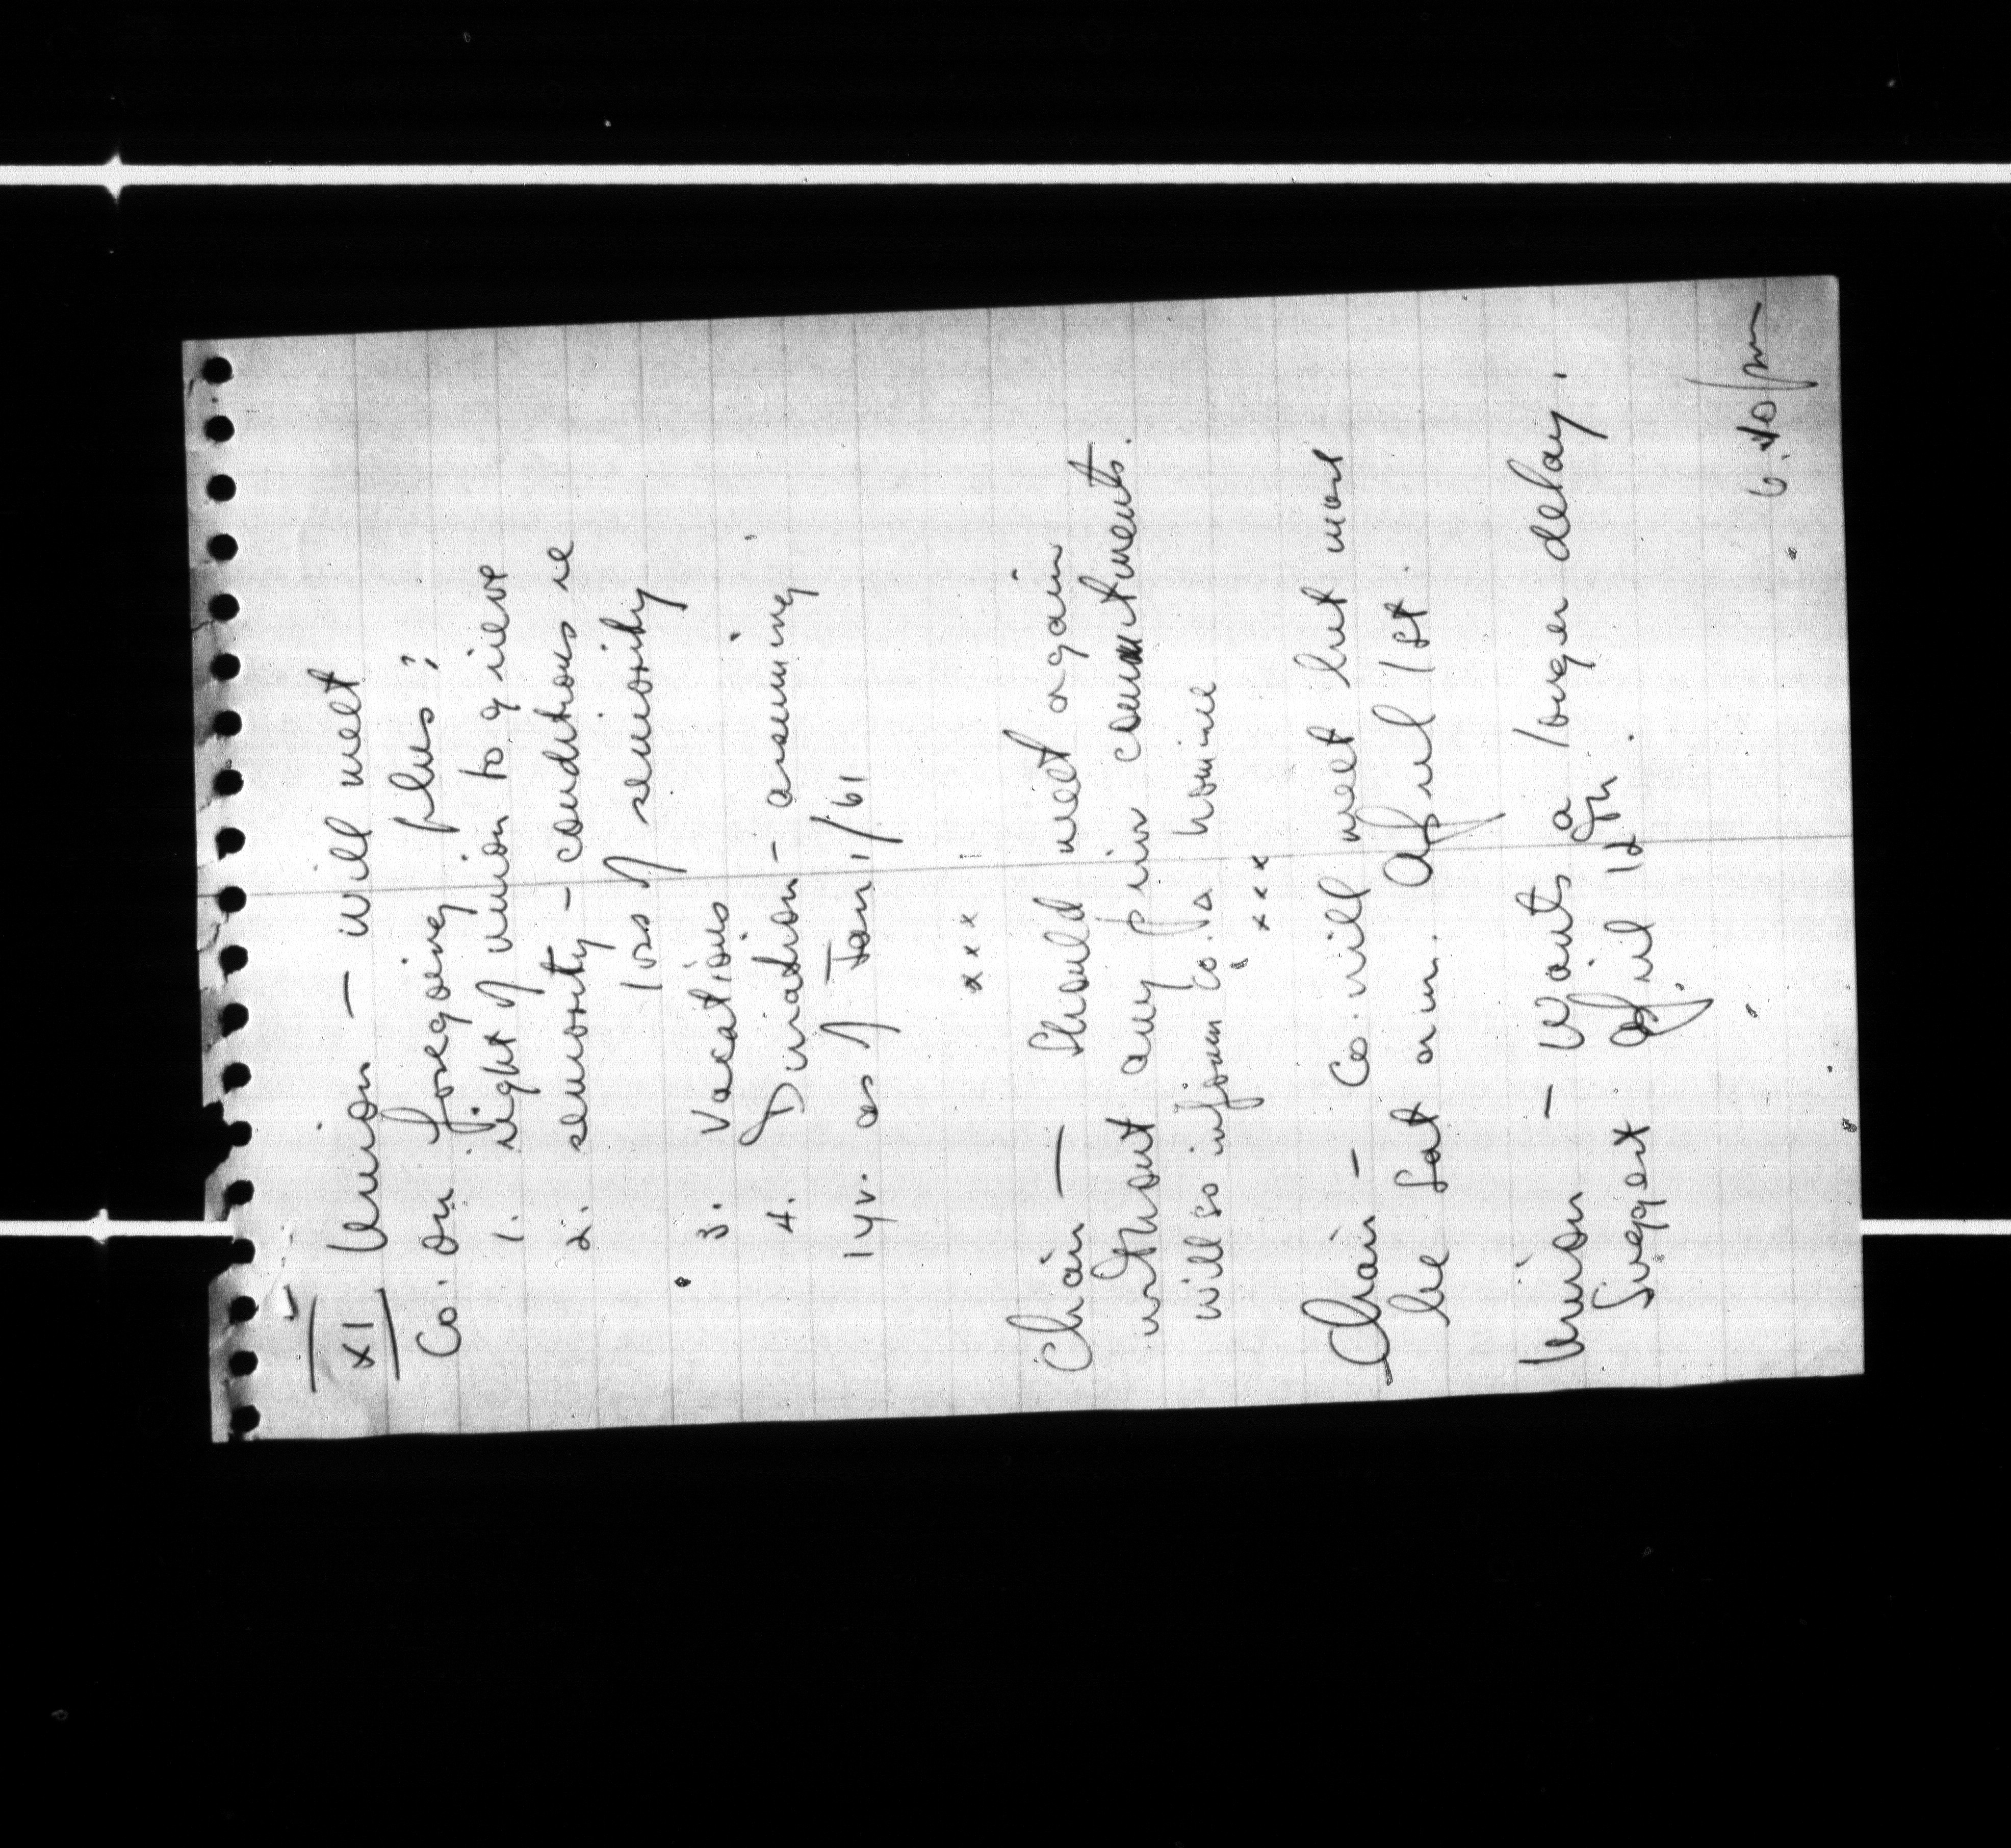 XI Union — will meet
Co. on foregoing plus:
1. right of union to grieve
2. seniority - conditions re
loss of seniority
3. Vacations
4. Duration - assuming
1 yr. as of Jan 1/61
x x x
Chair — Should meet again
without any firm commitments.
Will so inform Co. nominee
x x x
Chair - Co. will meet but must
be Sat a.m. April 1st.
Union - Wants a longer delay.
Suggest April
6.40 pm